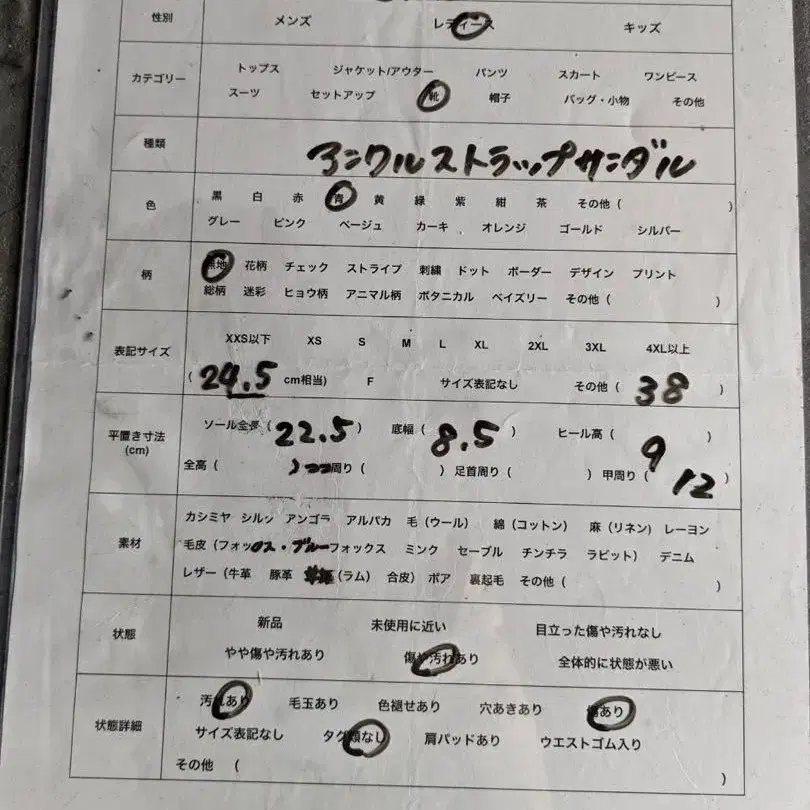 性別 メンズ レディース キッズ
カテゴリー
トップス ジャケット/アウター パンツ スカート ワンピース
スーツ セットアップ 靴 帽子 バッグ・小物 その他
種類 アンクルストラップサンダル
色
黒 白 赤 青 黄 緑 紫 紺 茶 その他 ( )
グレー ピンク ベージュ カーキ オレンジ ゴールド シルバー
柄
無地 花柄 チェック ストライプ 刺繍 ドット ボーダー デザイン プリント
総柄 迷彩 ヒョウ柄 アニマル柄 ボタニカル ペイズリー その他 ( )
表記サイズ
XXS以下 XS S M L XL 2XL 3XL 4XL以上
( 24.5 cm相当) F サイズ表記なし その他 ( 38 )
平置き寸法
(cm)
ソール全長 ( 22.5 ) 底幅 ( 8.5 ) ヒール高 ( 9 )
全高 ( ) 周り ( ) 足首周り ( ) 甲周り ( 12 )
素材
カシミヤ シルク アンゴラ アルパカ 毛 (ウール) 綿 (コットン) 麻 (リネン) レーヨン
毛皮 (フォックス・ブルーフォックス ミンク セーブル チンチラ ラビット) デニム
レザー (牛革 豚革 (ラム) 合皮) ボア 裏起毛 その他 ( )
状態
新品 未使用に近い 目立った傷や汚れなし
やや傷や汚れあり 傷や汚れあり 全体的に状態が悪い
状態詳細
汚れあり 毛玉あり 色褪せあり 穴あきあり 傷あり
サイズ表記なし タグ類なし 肩パッドあり ウエストゴム入り
その他 ( )